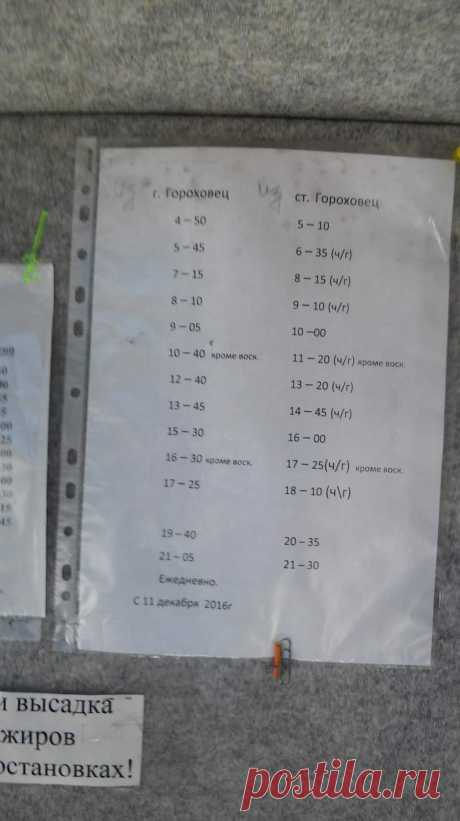 из г. Гороховец из ст. Гороховец
4 – 50 5 – 10
5 – 45 6 – 35 (ч/г)
7 – 15 8 – 15 (ч/г)
8 – 10 9 – 10 (ч/г)
9 – 05 10 –00
10 – 40 кроме воск. 11 – 20 (ч/г) кроме воск.
12 – 40 13 – 20 (ч/г)
13 – 45 14 – 45 (ч/г)
15 – 30 16 – 00
16 – 30 кроме воск. 17 – 25(ч/г) кроме воск.
17 – 25 18 – 10 (ч\г)
19 – 40 20 – 35
21 – 05 21 – 30
Ежедневно.
С 11 декабря 2016г
и высадка
жиров
остановках!
postila.ru